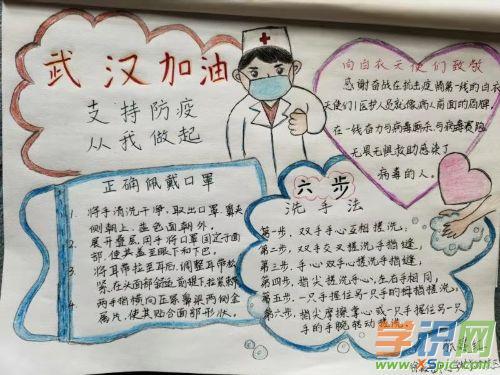 武汉加油
支持防疫
从我做起
向白衣天使们致敬
感谢奋战在抗击疫情第一线的白衣
天使们!医护人员就像病人前面的盾牌,
在一线奋力与病毒厮杀,与病毒赛跑
无畏无惧救助感染了
病毒的人。
正确佩戴口罩
1、将手清洗干净,取出口罩,鼻夹
侧朝上,蓝色面朝外。
2、展开叠层,用手将口罩固定于面
部,使其盖至眼下和下巴。
3、将耳带拉至耳后,调整耳带松
紧,在头面部
4、两手指横向正压鼻梁两侧金
属片,使其贴合面部形状。
六步
洗手法
第一步,双手手心互相搓洗。
第二步,双手交叉搓洗手指缝。
第三步,手心双手搓洗手指缝。
第四步,指尖搓洗手心,左右手相同。
第五步,一只手握住另一只手的拇指搓洗。
第六步,指尖摩擦掌心或一只手握另一只
手的手腕转动搓洗。
学识网
www.Xspic.com